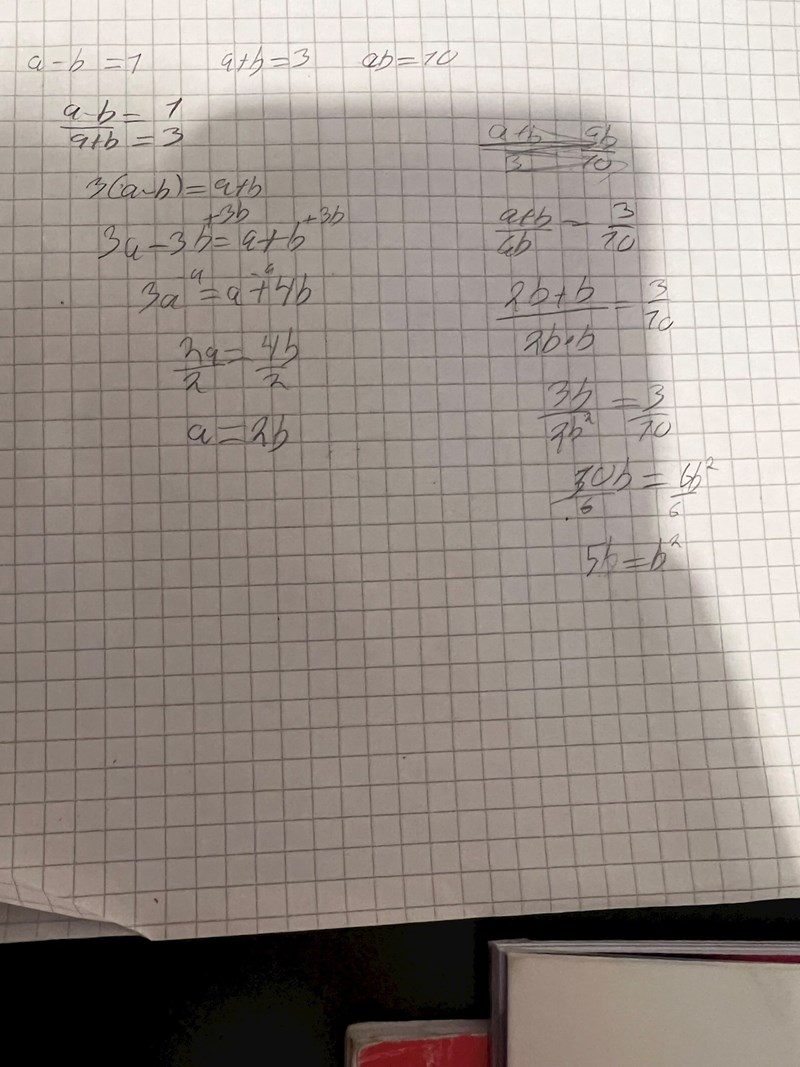 a-b=1 a+b=3 ab=10
a-b = 1
a+b = 3
3(a-b)=a+b
3a-3b+3b=a+b+3b
3a-a=a-a+4b
2a/2=4b/2
a=2b
a+b ab
3 10
a+b/ab = 3/10
2b+b/2b·b = 3/10
3b/2b² = 3/10
30b/6 = 6b²/6
5b=b²